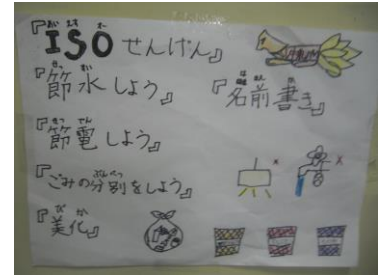 『ISOせんげん』
『節水しよう』
『名前書き』
『節電しよう』
『ごみの分別をしよう』
『美化』